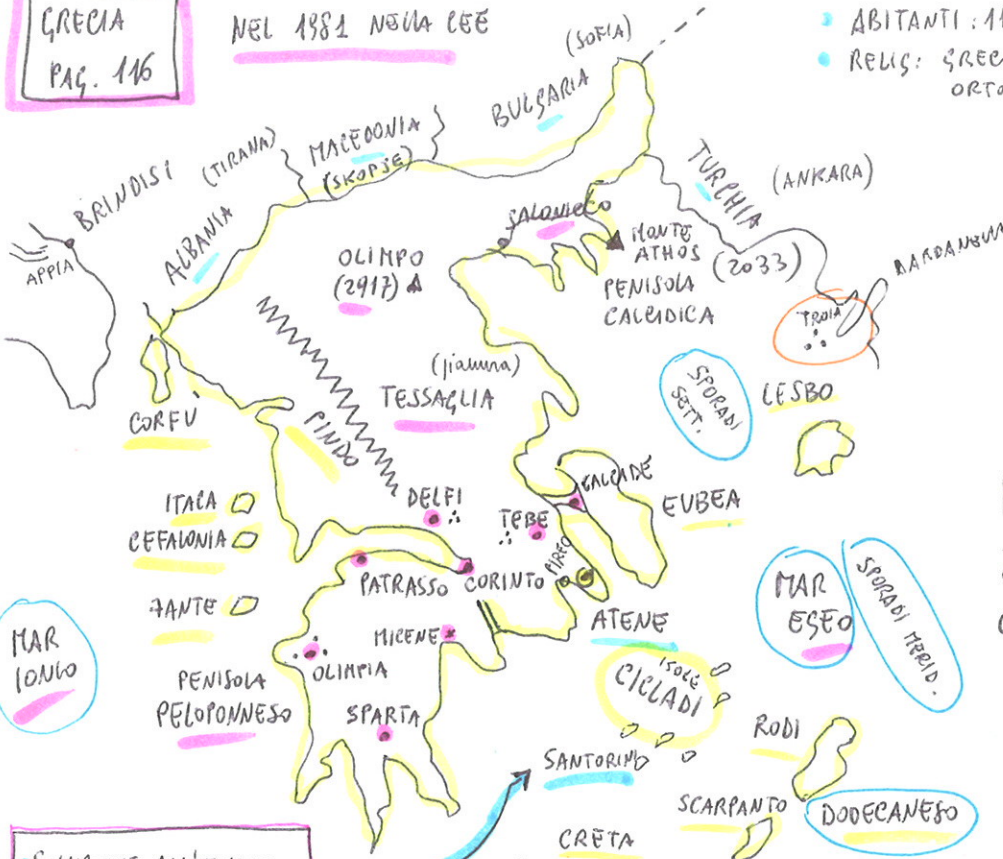 GRECIA
PAG. 116
NEL 1981 NELLA CEE
ABITANTI: 11
RELIG: GRECI
ORTO
(SOFIA)
BULGARIA
MACEDONIA
(SKOPJE)
(TIRANA)
ALBANIA
BRINDISI
APPIA
TURCHIA
(ANKARA)
DARDANELLI
TROIA
SALONICCO
MONTE
ATHOS
(2033)
PENISOLA
CALCIDICA
OLIMPO
(2917)
(pianura)
TESSAGLIA
PINDO
CORFÙ
SPORADI
SETT.
LESBO
ITACA
CEFALONIA
ZANTE
DELFI
TEBE
CALCIDE
EUBEA
PIREO
ATENE
PATRASSO
CORINTO
MICENE
OLIMPIA
SPARTA
PENISOLA
PELOPONNESO
MAR
IONIO
MAR
EGEO
SPORADI MERID.
ISOLE
CICLADI
SANTORINI
RODI
SCARPANTO
DODECANESO
CRETA